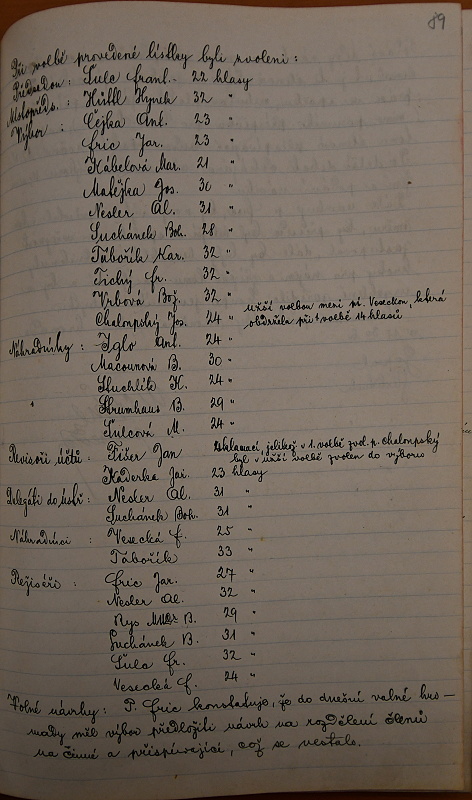 89
Při volbě provedené lístky byli zvoleni:
Předsedou: Šulc Frant. 22 hlasy
Místopředs.: Hüttl Hynek 32 "
Výbor: Cejka Ant. 23 "
Fric Jar. 23 "
Kábelová Mar. 21 "
Matějka Jos. 30 "
Nesler Al. 31 "
Suchánek Boh. 28 "
Tábořík Kar. 32 "
Tichý Fr. 32 "
Vrbová Bož. 32 "
Chaloupský Jos. 24 " užší volbou mezi sl. Veseckou, která
obdržela při 1 volbě 14 hlasů
Náhradníky: Iglo Ant. 24 "
Macounová B. 30 "
Stuchlík K. 24 "
Strumhaus B. 29 "
Šulcová M. 24 "
Revisoři účtů: Fišer Jan jelikož v 1. volbě zvol. p. Chaloupský
byl v užší volbě zvolen do výboru
Kaderka Jar. 23 hlasy
Delegáti do : Nesler Al. 31 "
Suchánek Boh. 31 "
Náhradníci: Vesecká F. 25 "
Tábořík 33 "
Režiséři: Fric Jar. 27 "
Nesler Al. 32 "
Rys B. 29 "
Suchánek B. 31 "
Šulc Fr. 32 "
Vesecká F. 24 "
Volné návrhy: P. Fric konstatuje, že do dnešní valné hro-
mady měl výbor předložiti návrh na rozdělení členů
na činné a přispívající, což se nestalo.